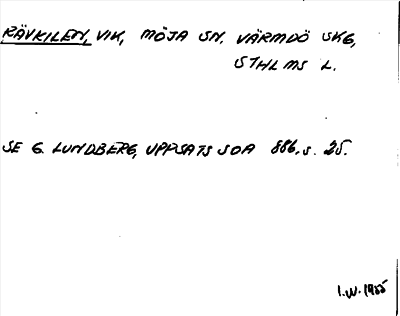 RÄVKILEN, VIK, MÖJA SN. VÄRMDÖ SKG,
STHLMS L.
SE G. LUNDBERG, UPPSATS SOA 886. s. 25.
I.W. 1955